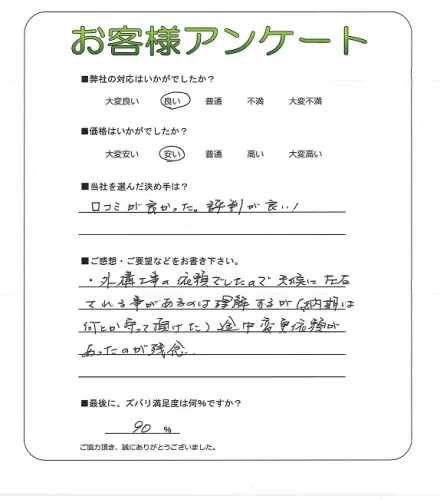 お客様アンケート
■弊社の対応はいかがでしたか？
大変良い 良い 普通 不満 大変不満
■価格はいかがでしたか？
大変安い 安い 普通 高い 大変高い
■当社を選んだ決め手は？
口コミが良かった。評判が良い！
■ご感想・ご要望などをお書き下さい。
・外構工事の依頼でしたので天候に左右
される事があるのは理解するが（納期は
何とか守って頂けた）途中変更依頼が
あったのが残念.
■最後に、ズバリ満足度は何%ですか？
90 %
ご協力頂き、誠にありがとうございました。